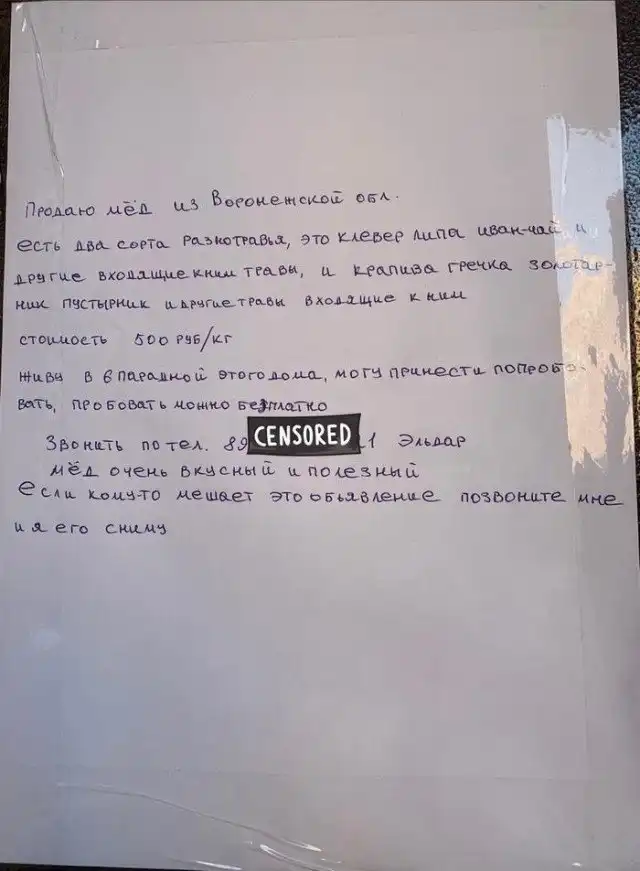 Продаю мёд из Воронежской обл.
есть два сорта разнотравья, это клевер липа иван-чай и
другие входящие к ним травы, и крапива гречка золотар-
ник пустырник и другие травы входящие к ним
стоимость 500 руб/кг
живу в 8 парадной этого дома, могу принести попробо-
вать, пробовать можно безплатно
Звонить по тел. 89 CENSORED 1 Эльдар
мёд очень вкусный и полезный
если кому-то мешает это обьявление позвоните мне
и я его сниму